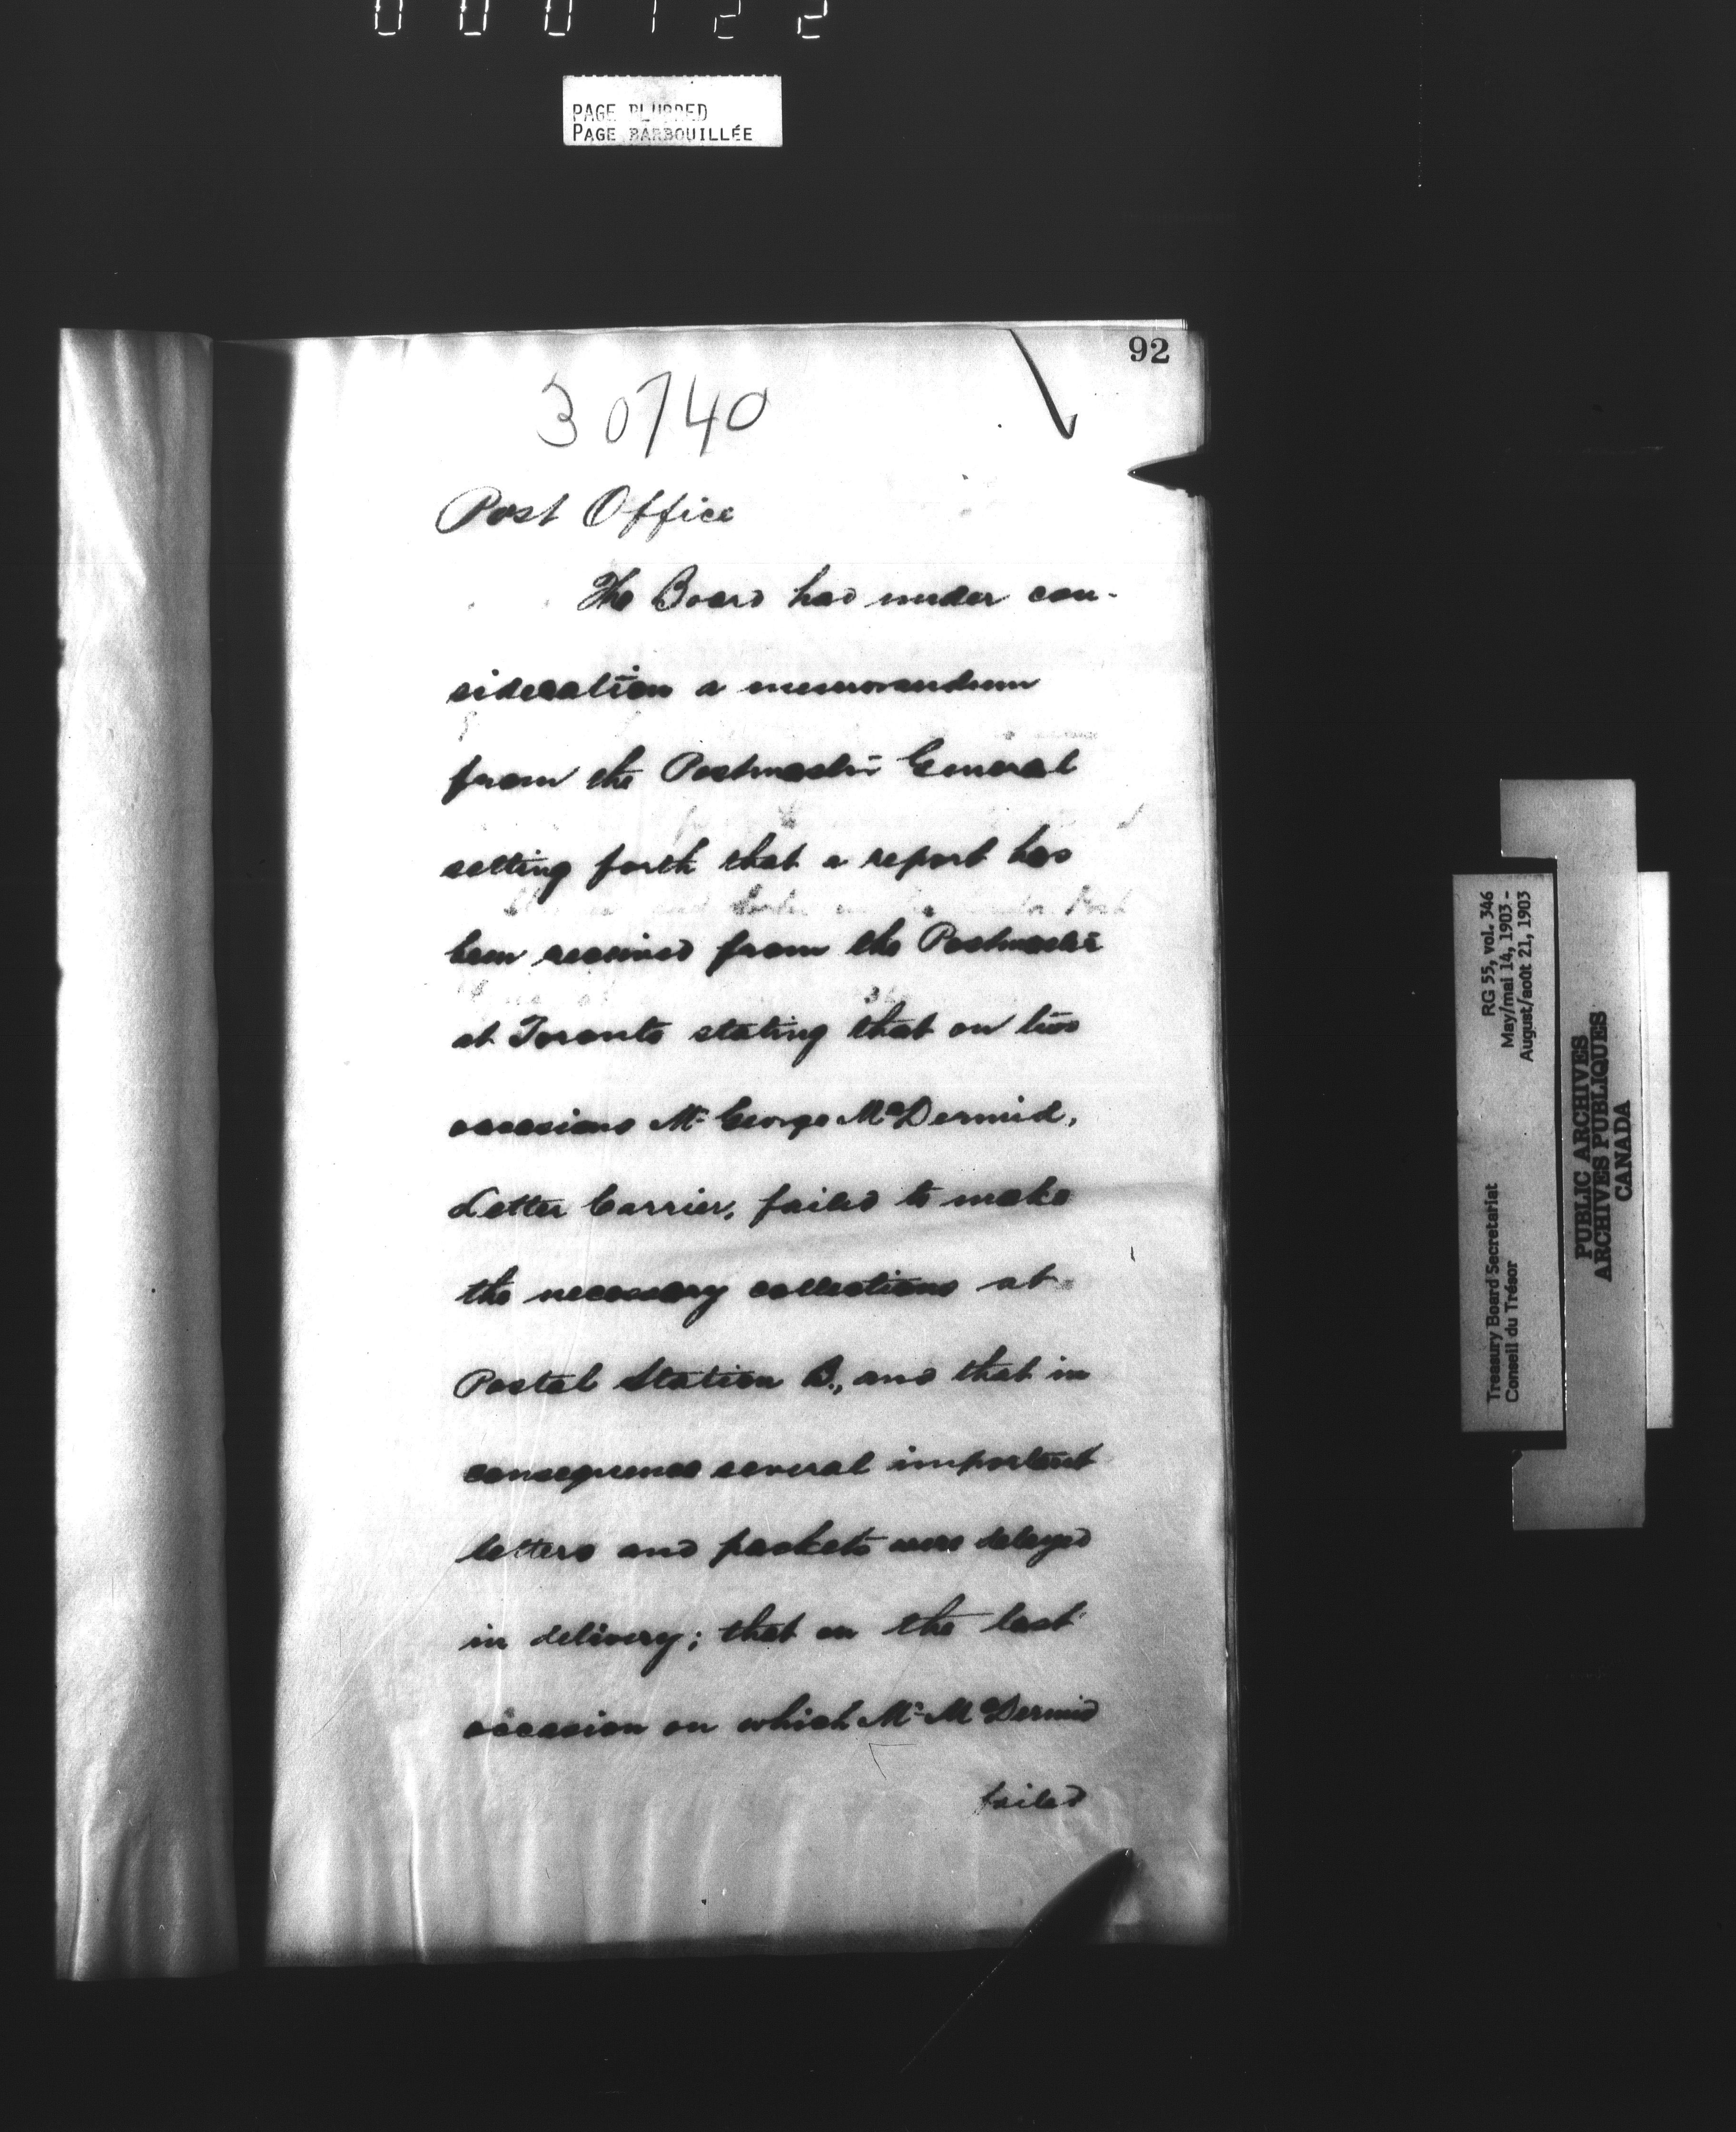 000122
PAGE BLURRED
PAGE BARBOUILLÉE
92
30740
Post Office
The Board had under con-
sideration a memorandum
from the Postmaster General
setting forth that a report has
been received from the Postmaster
at Toronto stating that on two
occasions Mr George McDermid,
Letter Carrier, failed to make
the necessary collections at
Postal Station B., and that in
consequence several important
letters and packets were delayed
in delivery; that on the last
occasion on which Mr McDermid
failed
Treasury Board Secretariat RG 55, vol. 346
Conseil du Trésor May/mai 14, 1903 -
August/août 21, 1903
PUBLIC ARCHIVES
ARCHIVES PUBLIQUES
CANADA